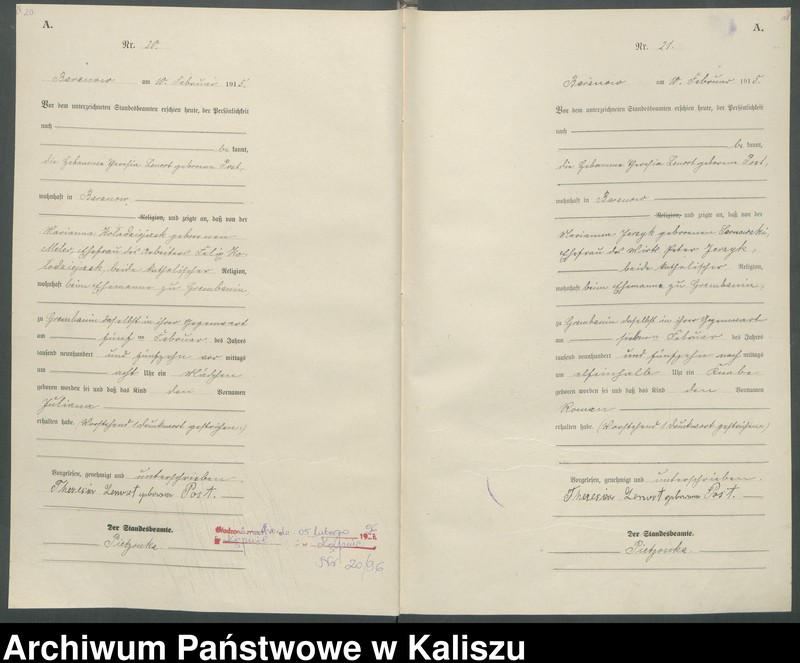 20
A.
Nr. 20.
Baranow am 10. Februar 1915.
Vor dem unterzeichneten Standesbeamten erschien heute, der Persönlichkeit
nach
be kannt,
die Hebamme Theresia Lenort geborene Post,
wohnhaft in Baranow
Religion, und zeigte an, daß von der
Marianna Kolodziejczak geborenen
Ehefrau des Arbeiters Felix Ko-
lodziejczak, beide katholischer Religion,
wohnhaft beim Ehemanne zu Grembanin,
zu Grembanin daselbst in ihrer Gegenwart
am fünften Februar des Jahres
tausend neunhundert und fünfzehn vor mittags
um acht Uhr ein Mädchen
geboren worden sei und daß das Kind den Vornamen
Juliana
erhalten habe. (Vorstehend 1 Druckwort gestrichen.)
Vorgelesen, genehmigt und unterschrieben.
Theresia Lenort geborene Post.
Der Standesbeamte.
Pietzonka
05 lutego
Kępnie
Nr. 20/96
A.
Nr. 21.
Baranow am 10. Februar 1915.
Vor dem unterzeichneten Standesbeamten erschien heute, der Persönlichkeit
nach
be kannt,
die Hebamme Theresia Lenort geborene Post,
wohnhaft in Baranow
Religion, und zeigte an, daß von der
Marianna Jerzyk geborenen
Ehefrau des Wirts Peter Jerzyk,
beide katholischer Religion,
wohnhaft beim Ehemanne zu Grembanin,
zu Grembanin daselbst in ihrer Gegenwart
am Februar des Jahres
tausend neunhundert und fünfzehn nach mittags
um elfeinhalb Uhr ein Knabe
geboren worden sei und daß das Kind den Vornamen
Roman
erhalten habe. (Vorstehend 1 Druckwort gestrichen.)
Vorgelesen, genehmigt und unterschrieben.
Theresia Lenort geborene Post.
Der Standesbeamte.
Pietzonka
Archiwum Państwowe w Kaliszu